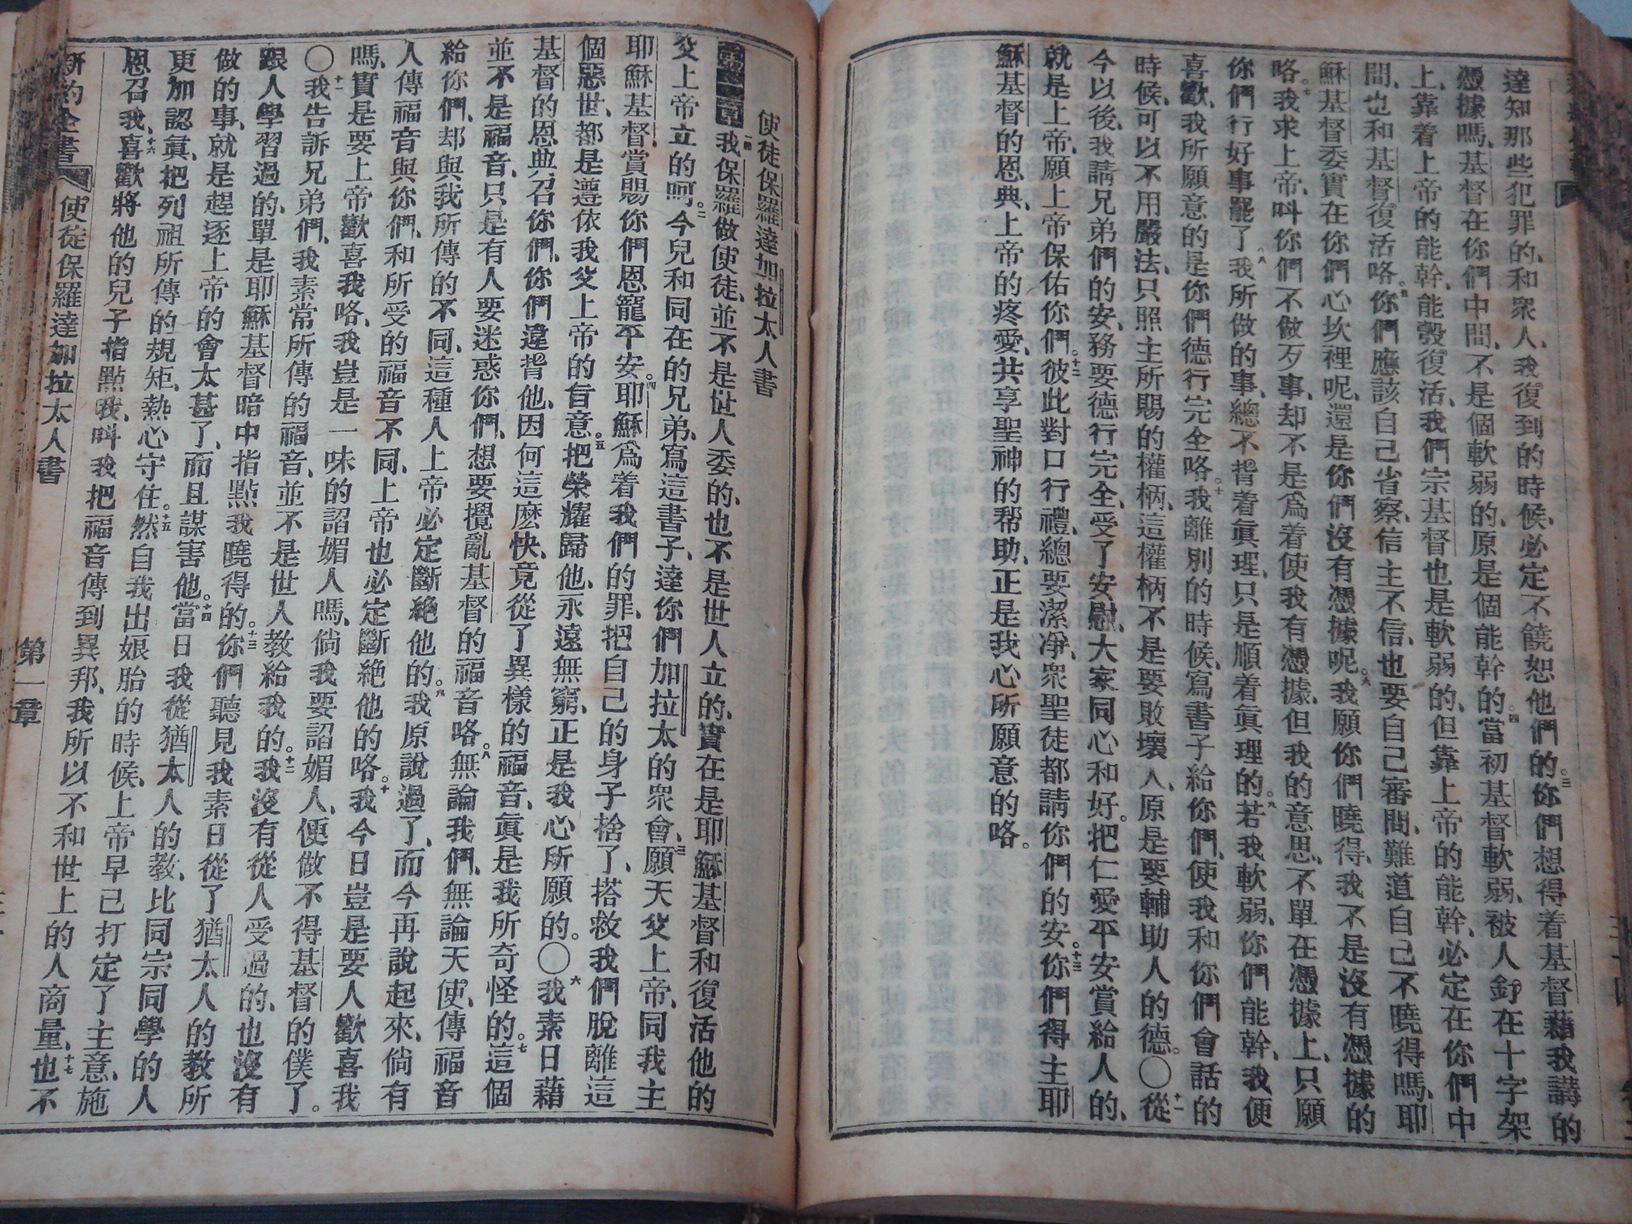 達知那些犯罪的、和衆人、我復到的時候、必定不饒恕他們的。三你們想得着基督藉我講的
憑據嗎、基督在你們中間、不是個軟弱的、原是個能幹的。四當初基督軟弱、被人釘在十字架
上、靠着上帝的能幹、能彀復活、我們宗基督也是軟弱的、但靠上帝的能幹、必定在你們中
間、也和基督復活咯。五你們應該自己省察、信主不信、也要自己審問、難道自己不曉得嗎、耶
穌基督委實在你們心坎裡呢、還是你們沒有憑據呢。六我願你們曉得、我不是沒有憑據的
咯。七我求上帝、叫你們不做歹事、却不是爲着使我有憑據、但我的意思、不單在憑據上、只願
你們行好事罷了。八我所做的事、總不揹着眞理、只是順着眞理的。九若我軟弱、你們能幹、我便
喜歡、我所願意的、是你們德行完全咯。十我離別的時候、寫書子給你們、使我和你們會話的
時候、可以不用嚴法、只照主所賜的權柄、這權柄不是要敗壞人、原是要輔助人的德。〇十一從
今以後、我請兄弟們的安、務要德行完全、受了安慰、大家同心和好。把仁愛平安賞給人的、
就是上帝、願上帝保佑你們。十二你們彼此對口行禮、總要潔凈、衆聖徒都請你們的安。十三你們得主耶
穌基督的恩典、上帝的疼愛、共享聖神的帮助、正是我心所願意的咯。
使徒保羅達加拉太人書
第一章一我保羅做使徒、並不是世人委的、也不是世人立的、實在是耶穌基督和復活他的
父上帝立的呵。二今兒和同在的兄弟、寫這書子、達你們加拉太的衆會、三願天父上帝、同我主
耶穌基督、賞賜你們恩寵平安。四耶穌爲着我們的罪、把自己的身子捨了、搭救我們脫離這
個惡世、都是遵依我父上帝的旨意。五把榮耀歸他、永遠無窮、正是我心所願的。〇六我素日藉
基督的恩典、召你們、你們違揹他、因何這麽快、竟從了異樣的福音、眞是我所奇怪的。七這個
並不是福音、只是有人要迷惑你們、想要攪亂基督的福音咯。八無論我們、無論天使、傳福音
給你們、却與我所傳的不同、這種人上帝必定斷絕他的。九我原說過了、而今再說起來、倘有
人傳福音與你們、和所受的福音不同、上帝也必定斷絕他的咯。十我今日豈是要人歡喜我
嗎、實是要上帝歡喜我咯、我豈是一味的諂媚人嗎、倘我要諂媚人、便做不得基督的僕了。
〇十一我告訴兄弟們、我素常所傳的福音、並不是世人教給我的。十二我沒有從人受過的、也沒有
跟人學習過的、單是耶穌基督暗中指點我曉得的。十三你們聽見我素日從了猶太人的教、所
做的事、就是趕逐上帝的會太甚了、而且謀害他。十四當日我從猶太人的教、比同宗同學的人
更加認眞、把列祖所傳的規矩、熱心守住。十五然自我出娘胎的時候、上帝早已打定了主意、施
恩召我、十六喜歡將他的兒子指點我、叫我把福音傳到異邦、我所以不和世上的人商量、十七也不
新約全書 使徒保羅達加拉太人書 第一章